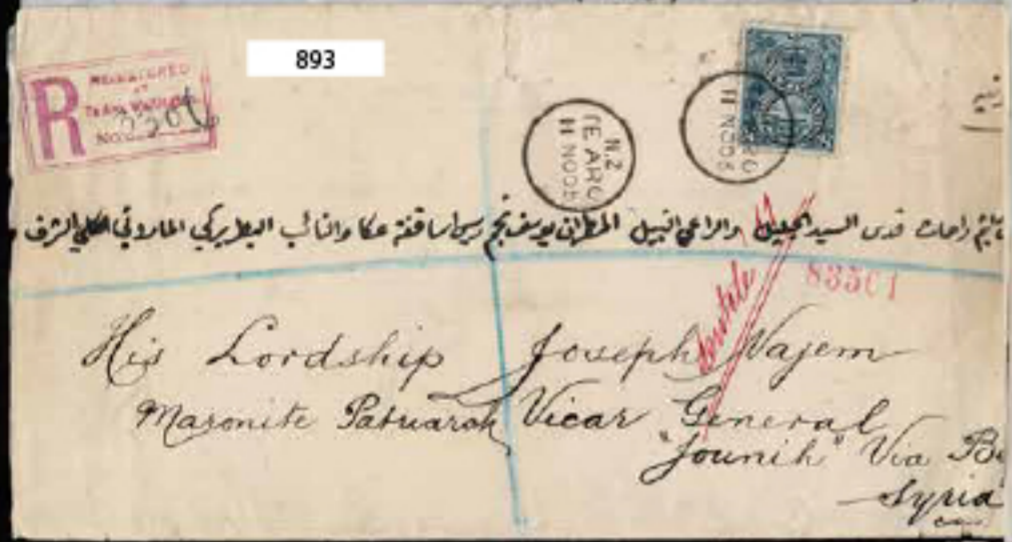 893
REGISTERED
AT
TE AROHA
R
No. 2206
N.Z
TE ARO
11 NO 05
11 NO 05
قدس السيد الجليل والراعي النبيل المطران يوسف نجم رئيس اساقفة عكا والنائب البطريركي الماروني الكلي الشرف
83501
His Lordship Joseph Najem
Maronite Patriarch Vicar General
"Jounih" Via
Syria